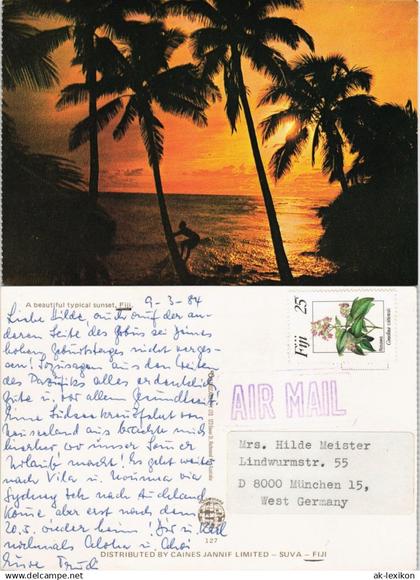 A beautiful typical sunset, Fiji.
9-3-84
Liebe Hilde, auch auf der an-
deren Seite des Globus sei Deines
hohen Geburtstages nicht verges-
sen! Sozusagen aus den Weiten
des Pazifiks alles erdenklich
Gute u. vor allem Gesundheit!
Eine Südseekreuzfahrt von
Neuseeland aus brachte mich
hierher, wo unser
Urlaub macht! Es geht weiter
nach Vila u. Noumea via
Sydney nach Auckland
komme aber erst nach dem
20.5. wieder heim! Dir u.
nochmals Aloha u.
Eure
Fiji 25
AIR MAIL
Mrs. Hilde Meister
Lindwurmstr. 55
D 8000 München 15,
West Germany
127
DISTRIBUTED BY CAINES JANNIF LIMITED – SUVA – FIJI
ak-lexikon